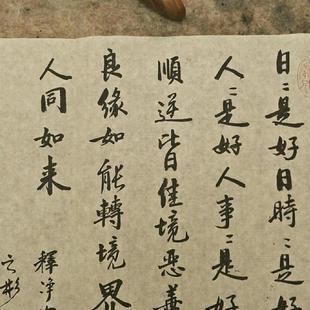 日〻是好日時〻是好
人〻是好人事〻是好
順逆皆佳境惡善
良緣如能轉境界
人同如来
釋淨
彬